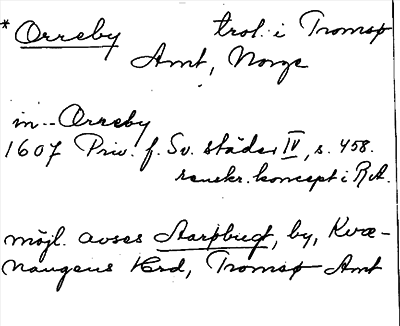 * Orreby trol. i Tromsø
Amt, Norge
in -- Orreby
1607 Priv. f. Sv. städer IV, s. 458.
renskr. koncept i RA.
möjl. avses Aarpbugt, by, Kvæ-
naugens Hrd, Tromsø Amt